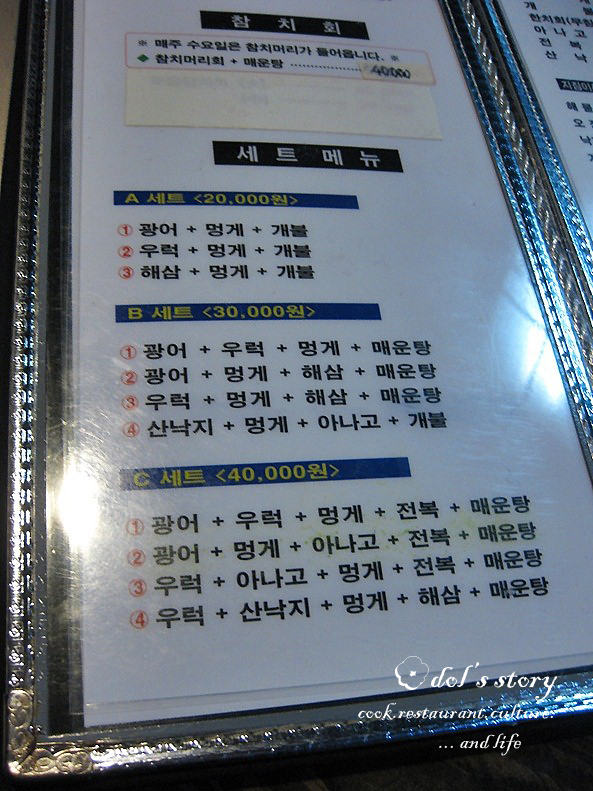 참 치 회
※ 매주 수요일은 참치머리가 들어옵니다. ※
◆ 참치머리회 + 매운탕 ........................ 40000
세 트 메 뉴
A 세트 <20,000원>
① 광어 + 멍게 + 개불
② 우럭 + 멍게 + 개불
③ 해삼 + 멍게 + 개불
B 세트 <30,000원>
① 광어 + 우럭 + 멍게 + 매운탕
② 광어 + 멍게 + 해삼 + 매운탕
③ 우럭 + 멍게 + 해삼 + 매운탕
④ 산낙지 + 멍게 + 아나고 + 개불
C 세트 <40,000원>
① 광어 + 우럭 + 멍게 + 전복 + 매운탕
② 광어 + 멍게 + 아나고 + 전복 + 매운탕
③ 우럭 + 아나고 + 멍게 + 전복 + 매운탕
④ 우럭 + 산낙지 + 멍게 + 해삼 + 매운탕
개
아 나 고
전 복
산 낙
해 물
오 징
낙
dol's story
cook.restaurant.culture.
... and life